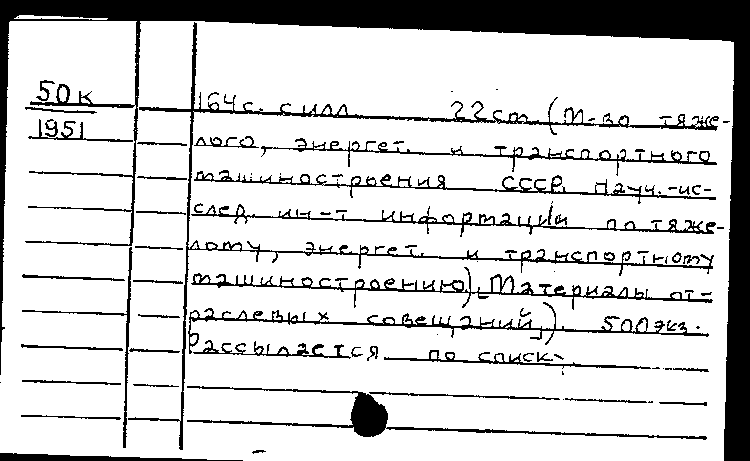 50к
1951
164с. с илл. 22см. (М-во тяже-
лого, энергет. и транспортного
машиностроения СССР. Науч.-ис-
след. ин-т информации по тяже-
лому, энергет. и транспортному
машиностроению). Материалы от-
раслевых совещаний). 500экз.
Рассылается по списку.